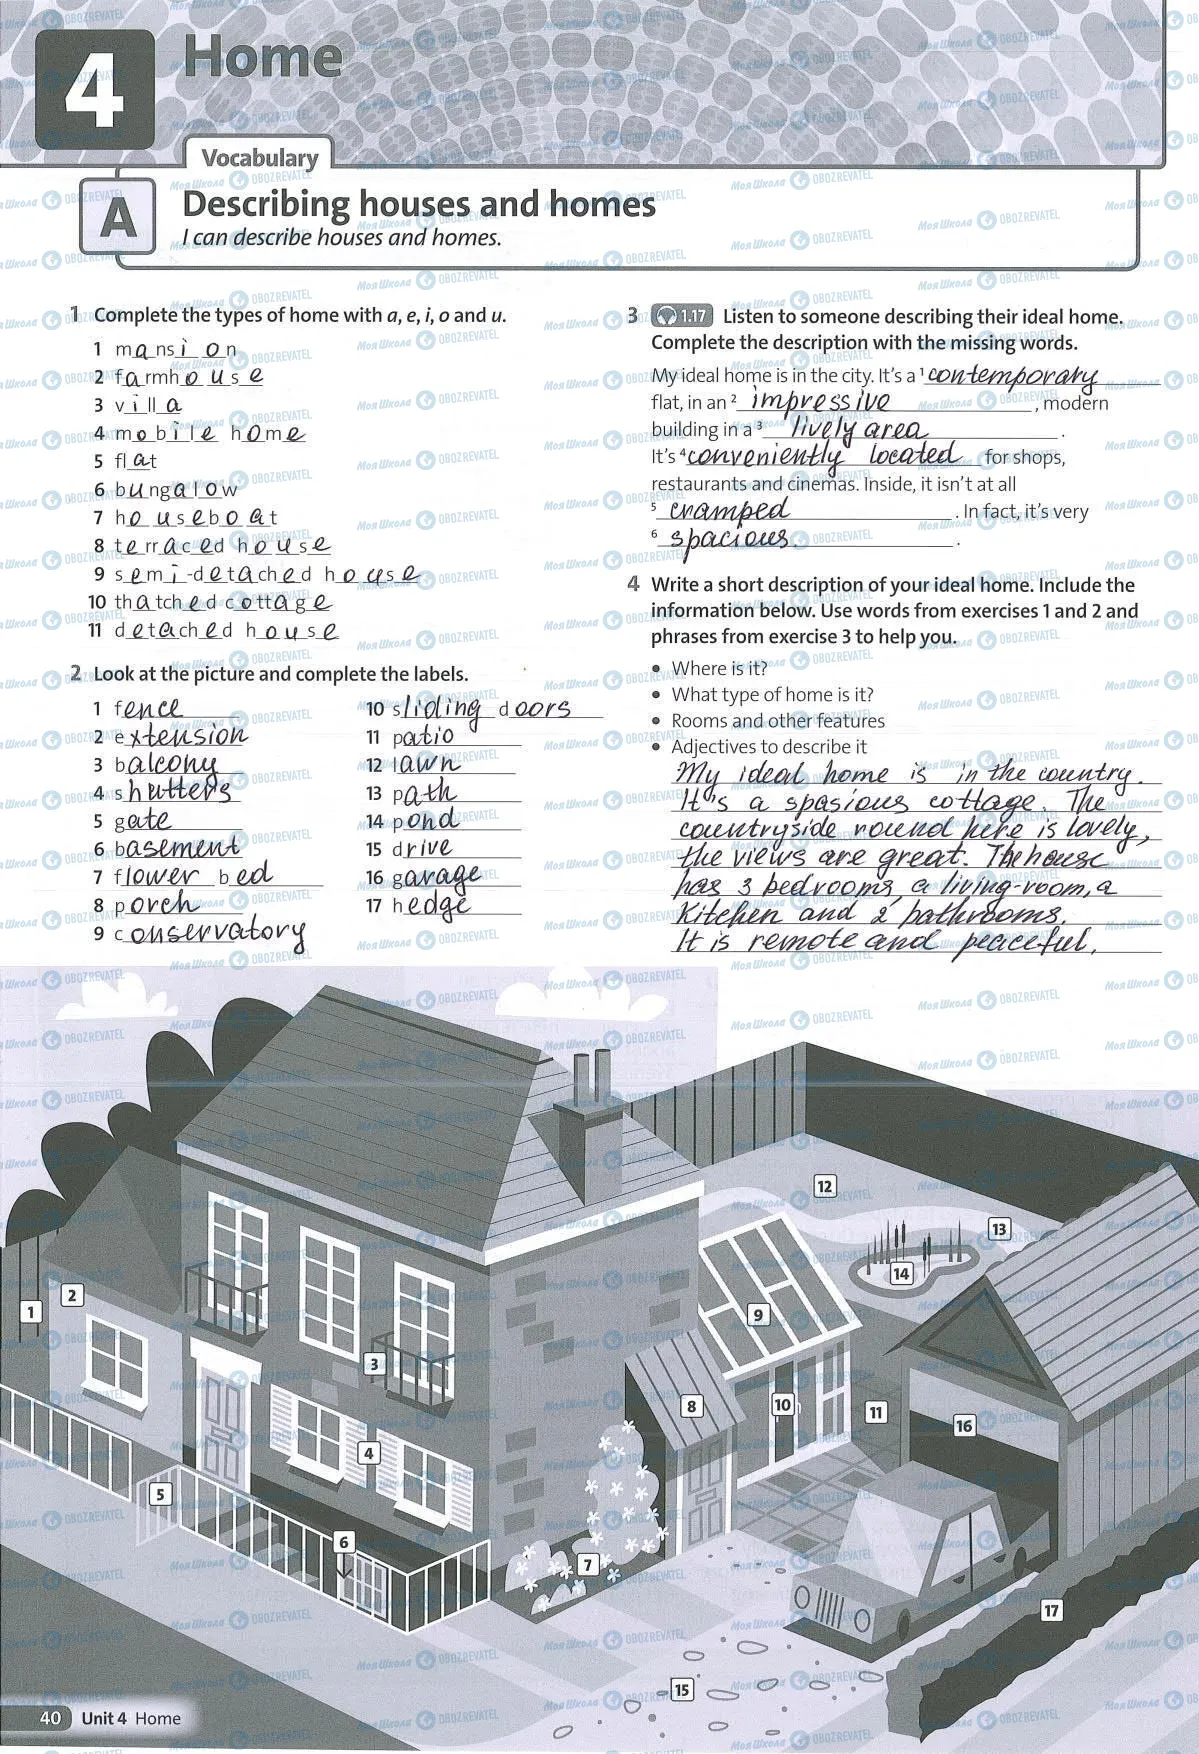 4
Home
Vocabulary
A
Describing houses and homes
I can describe houses and homes.
1 Complete the types of home with a, e, i, o and u.
1 mansion
2 farmhouse
3 villa
4 mobile home
5 flat
6 bungalow
7 houseboat
8 terraced house
9 semi-detached house
10 thatched cottage
11 detached house
2 Look at the picture and complete the labels.
1 fence
2 extension
3 balcony
4 shutters
5 gate
6 basement
7 flower bed
8 porch
9 conservatory
10 sliding doors
11 patio
12 lawn
13 path
14 pond
15 drive
16 garage
17 hedge
3 1.17 Listen to someone describing their ideal home.
Complete the description with the missing words.
My ideal home is in the city. It's a 1 contemporary
flat, in an 2 impressive, modern
building in a 3 lively area.
It's 4 conveniently located for shops,
restaurants and cinemas. Inside, it isn't at all
5 cramped. In fact, it's very
6 spacious.
4 Write a short description of your ideal home. Include the
information below. Use words from exercises 1 and 2 and
phrases from exercise 3 to help you.
• Where is it?
• What type of home is it?
• Rooms and other features
• Adjectives to describe it
My ideal home is in the country.
It's a spasious cottage. The
countryside round here is lovely,
the views are great. The house
has 3 bedrooms, a living-room, a
kitchen and 2 bathrooms.
It is remote and peaceful.
1
2
3
4
5
6
7
8
9
10
11
12
13
14
15
16
17
40 Unit 4 Home
МояШкола OBOZREVATEL